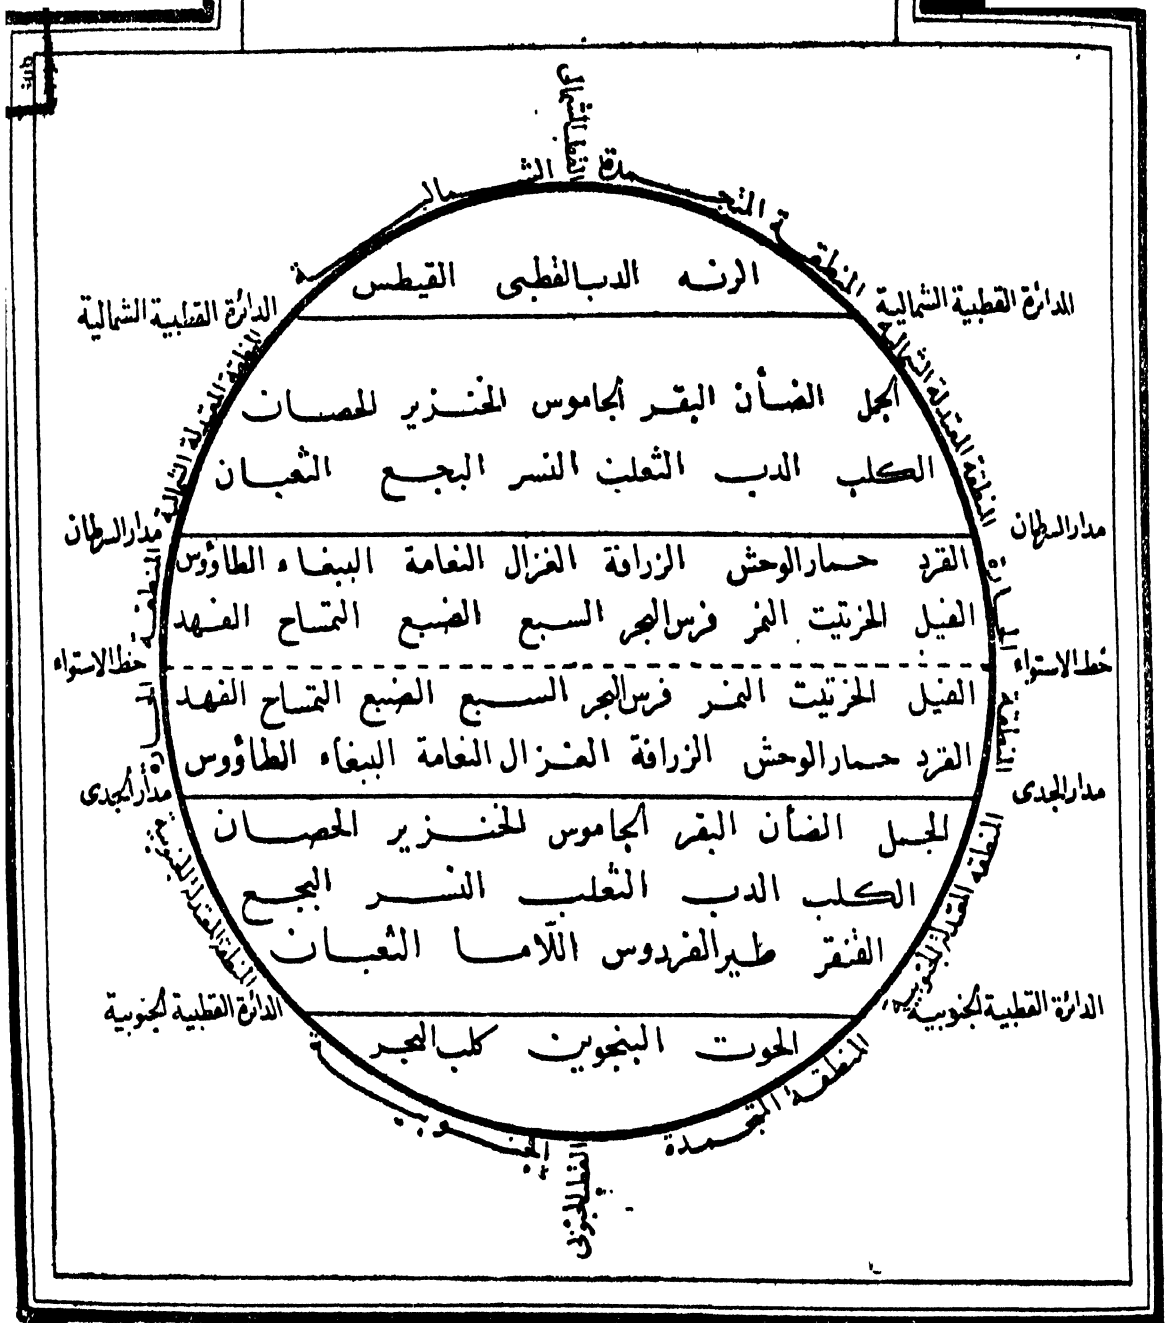 القطب الشمالى
المنطقة المتجمدة الشمالية
الرنه الدب القطبى القيطس
الدائرة القطبية الشمالية
الدائرة القطبية الشمالية
المنطقة المعتدلة الشمالية
المنطقة المعتدلة الشمالية
الجمل الضأن البقر الجاموس الخنزير الحصان
الكلب الدب الثعلب النسر البجع الثعبان
مدار السرطان
مدار السرطان
المنطقة الحارة
المنطقة الحارة
القرد حمار الوحش الزرافة الغزال النعامة الببغاء الطاؤوس
الفيل الخرتيت النمر فرس البحر السبع الضبع التمساح الفهد
خط الاستواء
خط الاستواء
الفيل الخرتيت النمر فرس البحر السبع الضبع التمساح الفهد
القرد حمار الوحش الزرافة الغزال النعامة الببغاء الطاؤوس
مدار الجدى
مدار الجدى
المنطقة المعتدلة الجنوبية
المنطقة المعتدلة الجنوبية
الجمل الضأن البقر الجاموس الخنزير الحصان
الكلب الدب الثعلب النسر البجع
القنقر طير الفردوس اللاما الثعبان
الدائرة القطبية الجنوبية
الدائرة القطبية الجنوبية
الحوت البنجوين كلب البحر
المنطقة المتجمدة الجنوبية
القطب الجنوبى